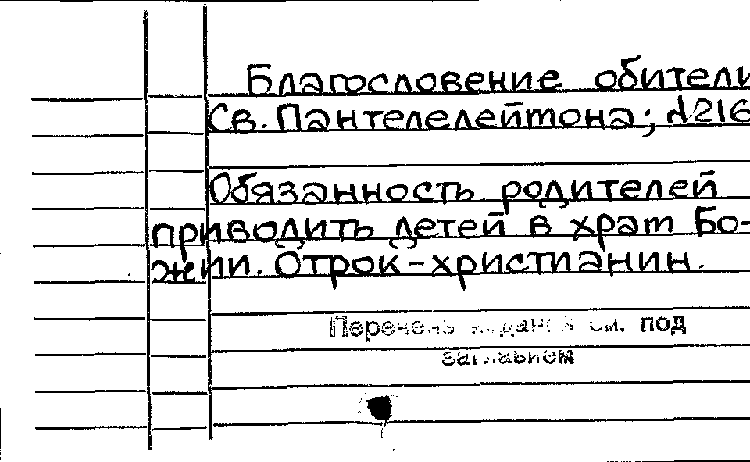 Благословение обители
Св. Пантелелеймона; №216
Обязанность родителей
приводить детей в храм Бо-
жии. Отрок-христианин.
Перечень изданий см. под
заглавием